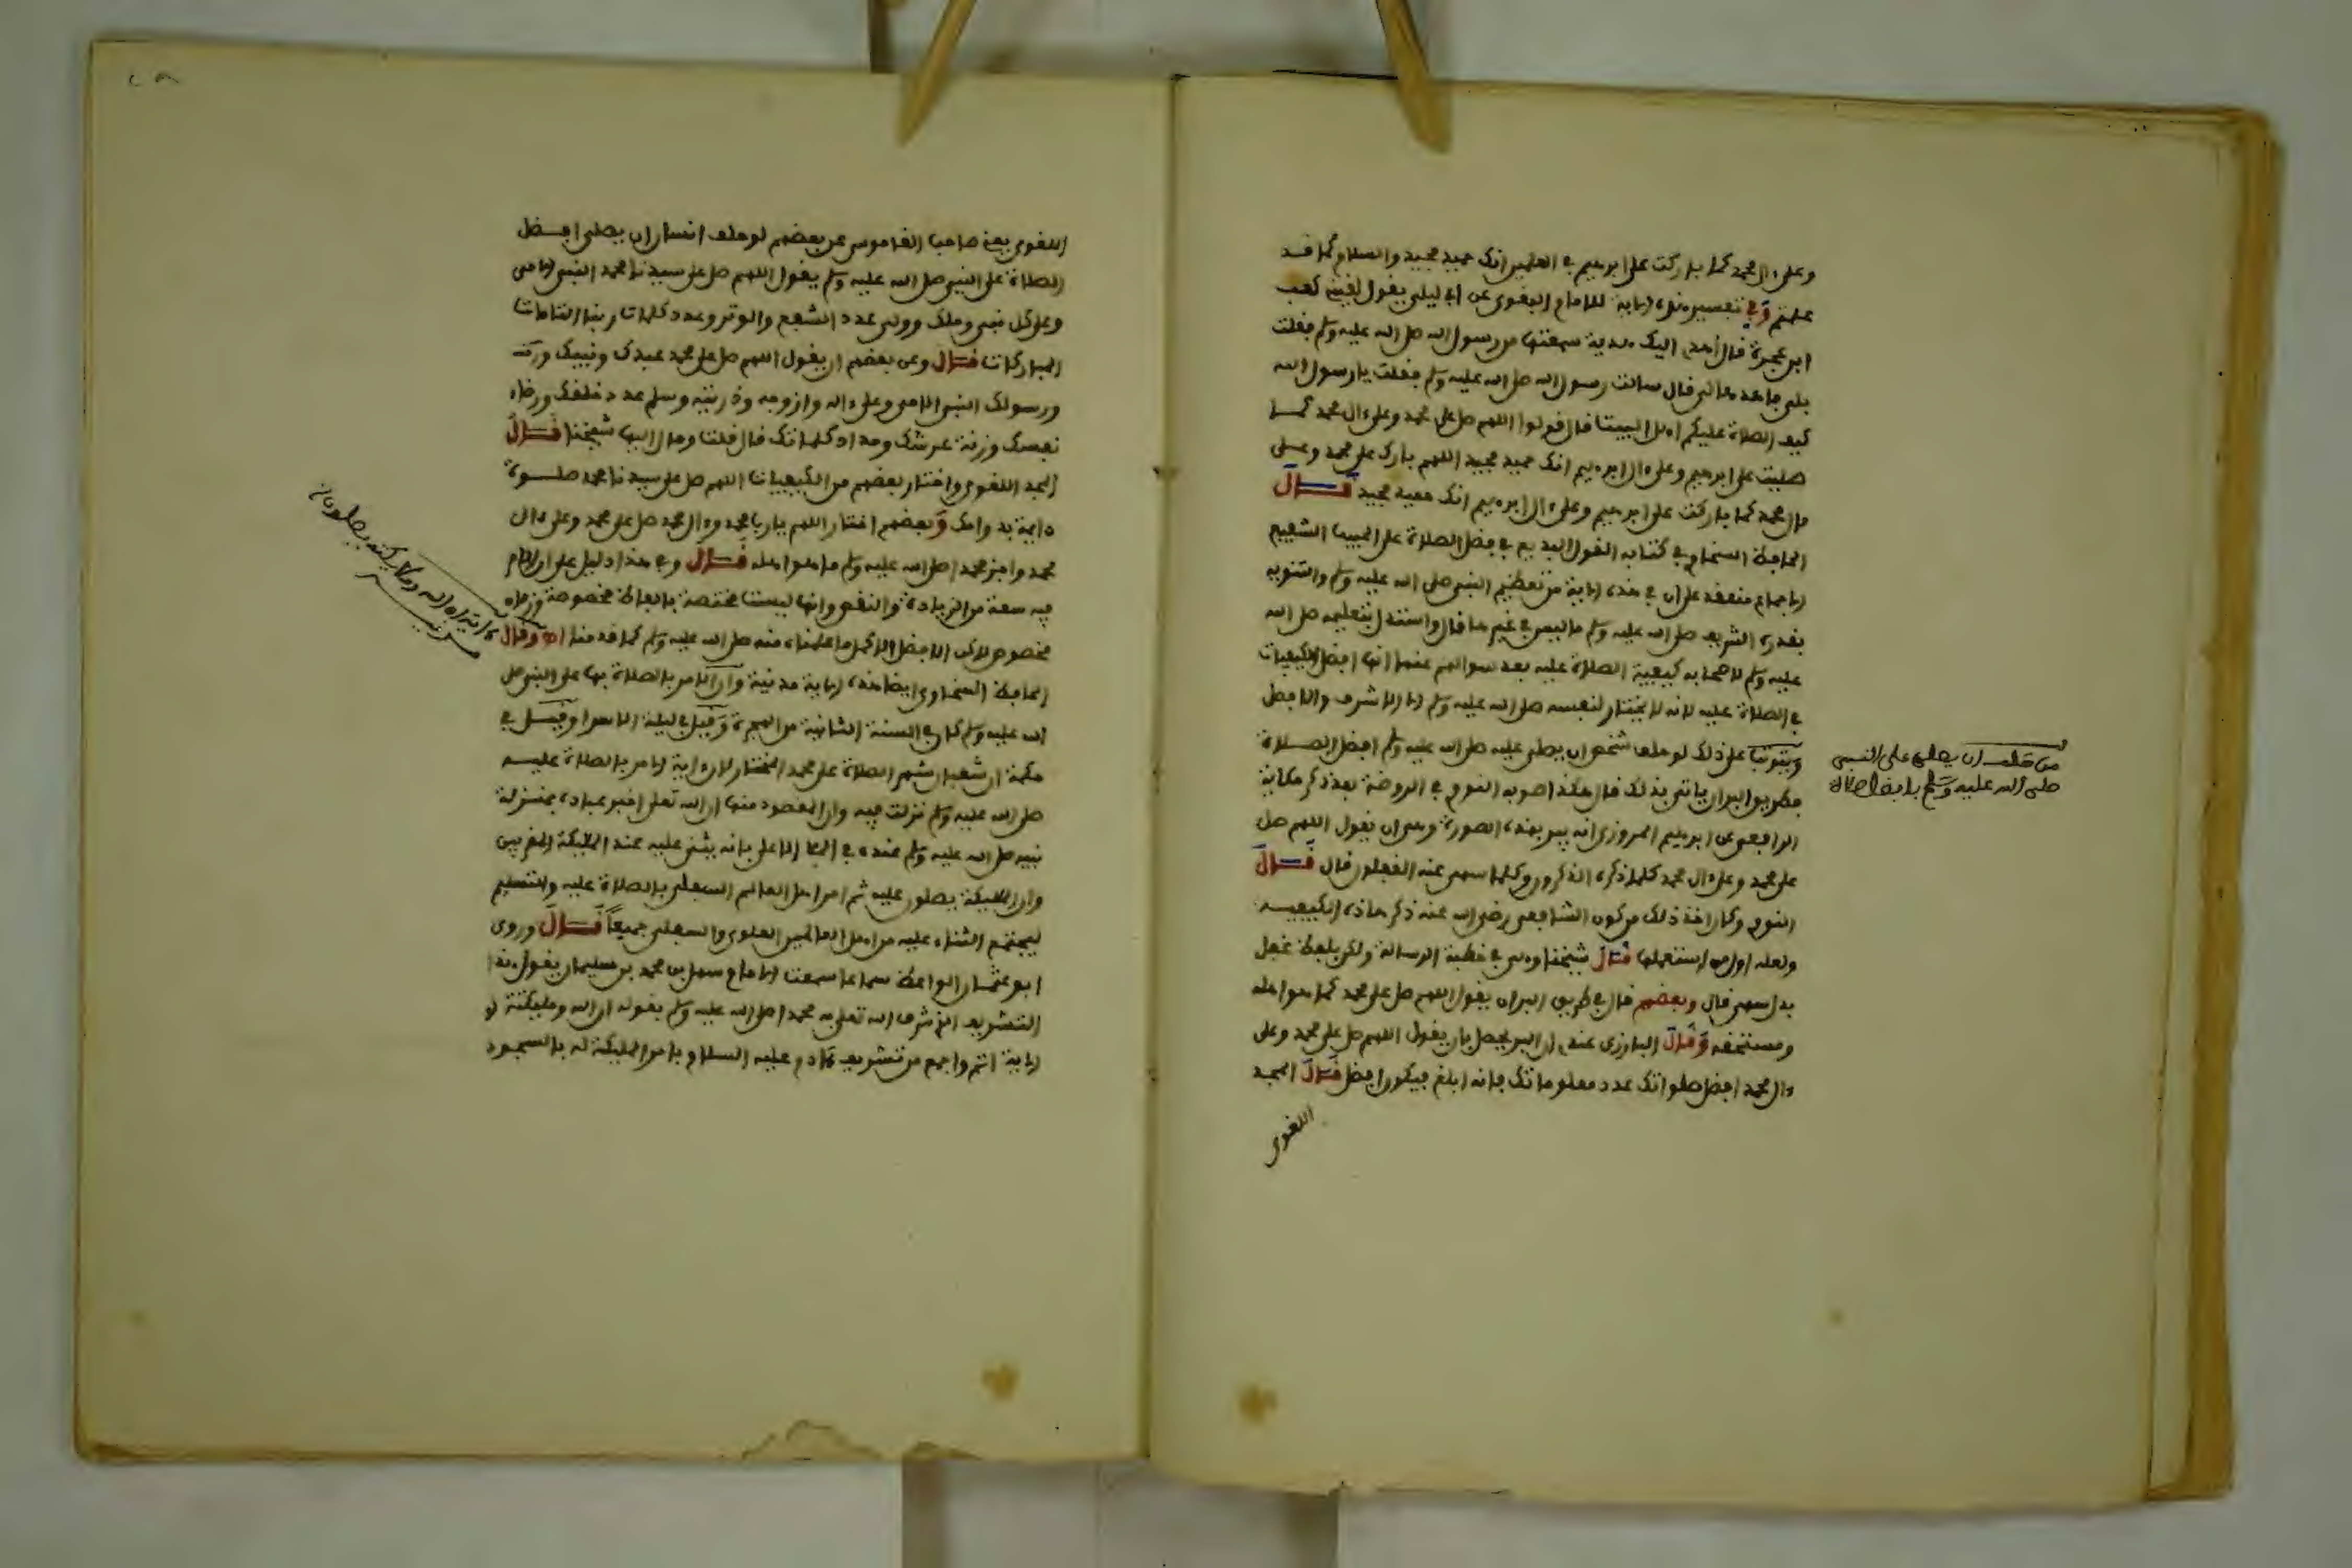 وعلى ءال محمد كما باركت على ابرهيم في العلمين انك حميد مجيد والسلام كما قد
علمتم وفي تفسير هذه الاية للامام البغوي عن ابي ليلى يقول لقيني كعب
ابن عجرة فقال اهدي اليك هدية سمعتها من رسول الله صلى الله عليه وسلم فقلت
بلى فاهدها لي فقال سالت رسول الله صلى الله عليه وسلم فقلت يا رسول الله
كيف الصلاة عليكم اهل البيت قال قولوا اللهم صل على محمد وعلى ءال محمد كما
صليت على ابرهيم وعلى ءال ابرهيم انك حميد مجيد اللهم بارك على محمد وعلى
ءال محمد كما باركت على ابرهيم وعلى ءال ابرهيم انك حميد مجيد قال
الحافظ السخاوي في كتابه القول البديع في فضل الصلاة على الحبيب الشفيع
الاجماع منعقد على ان في هذه الاية من تعظيم النبي صلى الله عليه وسلم والتنويه
بقدره الشريف صلى الله عليه وسلم ما ليس في غيرها قال واستدل بتعليمه صلى الله
عليه وسلم لاصحابه كيفية الصلاة عليه بعد سوالهم عنها انها افضل الكيفيات
في الصلاة عليه لانه لا يختار لنفسه صلى الله عليه وسلم الا الاشرف والافضل
ويترتب على ذلك لو حلف شخص ان يصلي عليه صلى الله عليه وسلم افضل الصلاة
فطريق البر ان ياتي بذلك قال هكذا صوبه النووي في الروضة بعد ذكر حكاية
الرافعي عن ابرهيم المروزي انه يبر بهذه الصورة وهي ان يقول اللهم صل
على محمد وعلى ءال محمد كلما ذكره الذاكرون وكلما سهى عنه الغفلون قال قال
النووي وكان اخذ ذلك من كون الشافعي رضي الله عنه ذكر هاذه الكيفيه
ولعله اول من استعملها قال شيخنا وهي في خطبة الرسالة ولكن بلفظ غفل
بدل سهى قال وبعضهم قال في طريق البر ان يقول اللهم صل على محمد كما هو اهله
ومستحقه وقال البارزي عندي ان البر يحصل بان يقول اللهم صل على محمد وعلى
ءال محمد افضل صلواتك عدد معلوماتك فانه ابلغ فيكون افضل قال المجد
اللغوي
من حلف ان يصلي على النبي
صلى الله عليه وسلم بافضل صلاة
اللغوي يعني صاحب القاموس عن بعضهم لو حلف انسان ان يصلي افضل
الصلاة على النبي صلى الله عليه وسلم يقول اللهم صل على سيدنا محمد النبي الامي
وعلى كل نبي وملك وولي عدد الشفع والوتر وعدد كلمات ربنا التامات
المباركات قال وعن بعضهم ان يقول اللهم صل على محمد عبدك ونبيك
ورسولك النبي الامي وعلى ءاله وازوجه وذريته وسلم عدد خلقك ورضاء
نفسك وزنة عرشك ومداد كلماتك قال قلت ومال اليها شيخنا قال
المجد اللغوي واختار بعضهم من الكيفيات اللهم صل على سيدنا محمد صلوة
دايمة بدوامك وبعضهم اختار اللهم يا رب محمد وءال محمد صل على محمد وعلى ءال
محمد واجز محمدا صلى الله عليه وسلم ما هو اهله قال وفي هذا دليل على ان الامر
فيه سعة من الزيادة والنقص وانها ليست مختصة بالفاظ مخصوصة وزمان
مخصوص لاكن الافضل الاكمل ما علمناه منه صلى الله عليه وسلم كما قدمنا اه وقال
الحافظ السخاوي ايضا هذه الاية مدنية وان الامر بالصلاة بها على النبي صلى
الله عليه وسلم كان في السنة الثانية من الهجرة وقيل في ليلة الاسرا وقيل في
مكة ان شعبان شهر الصلاة على محمد المختار لان ءاية الامر بالصلاة عليه
صلى الله عليه وسلم نزلت فيه وان المقصود منها ان الله تعلى اخبر عباده بمنزلة
نبيه صلى الله عليه وسلم عنده في الملا الاعلى بانه يثني عليه عند المليكة المقربين
وان المليكة يصلون عليه ثم امر اهل العالم السفلي بالصلاة عليه والتسليم
ليجتمع الثناء عليه من اهل العالمين العلوي والسفلي جميعا قال وروى
ابو عثمان الواعظ سماعا سمعت الامام سهل بن محمد بن سليمان يقول هذا
التشريف الذي شرف الله تعلى به محمدا صلى الله عليه وسلم بقوله ان الله ومليكته
الاية اتم واجمع من تشريف ءادم عليه السلام بامر المليكة له بالسجود